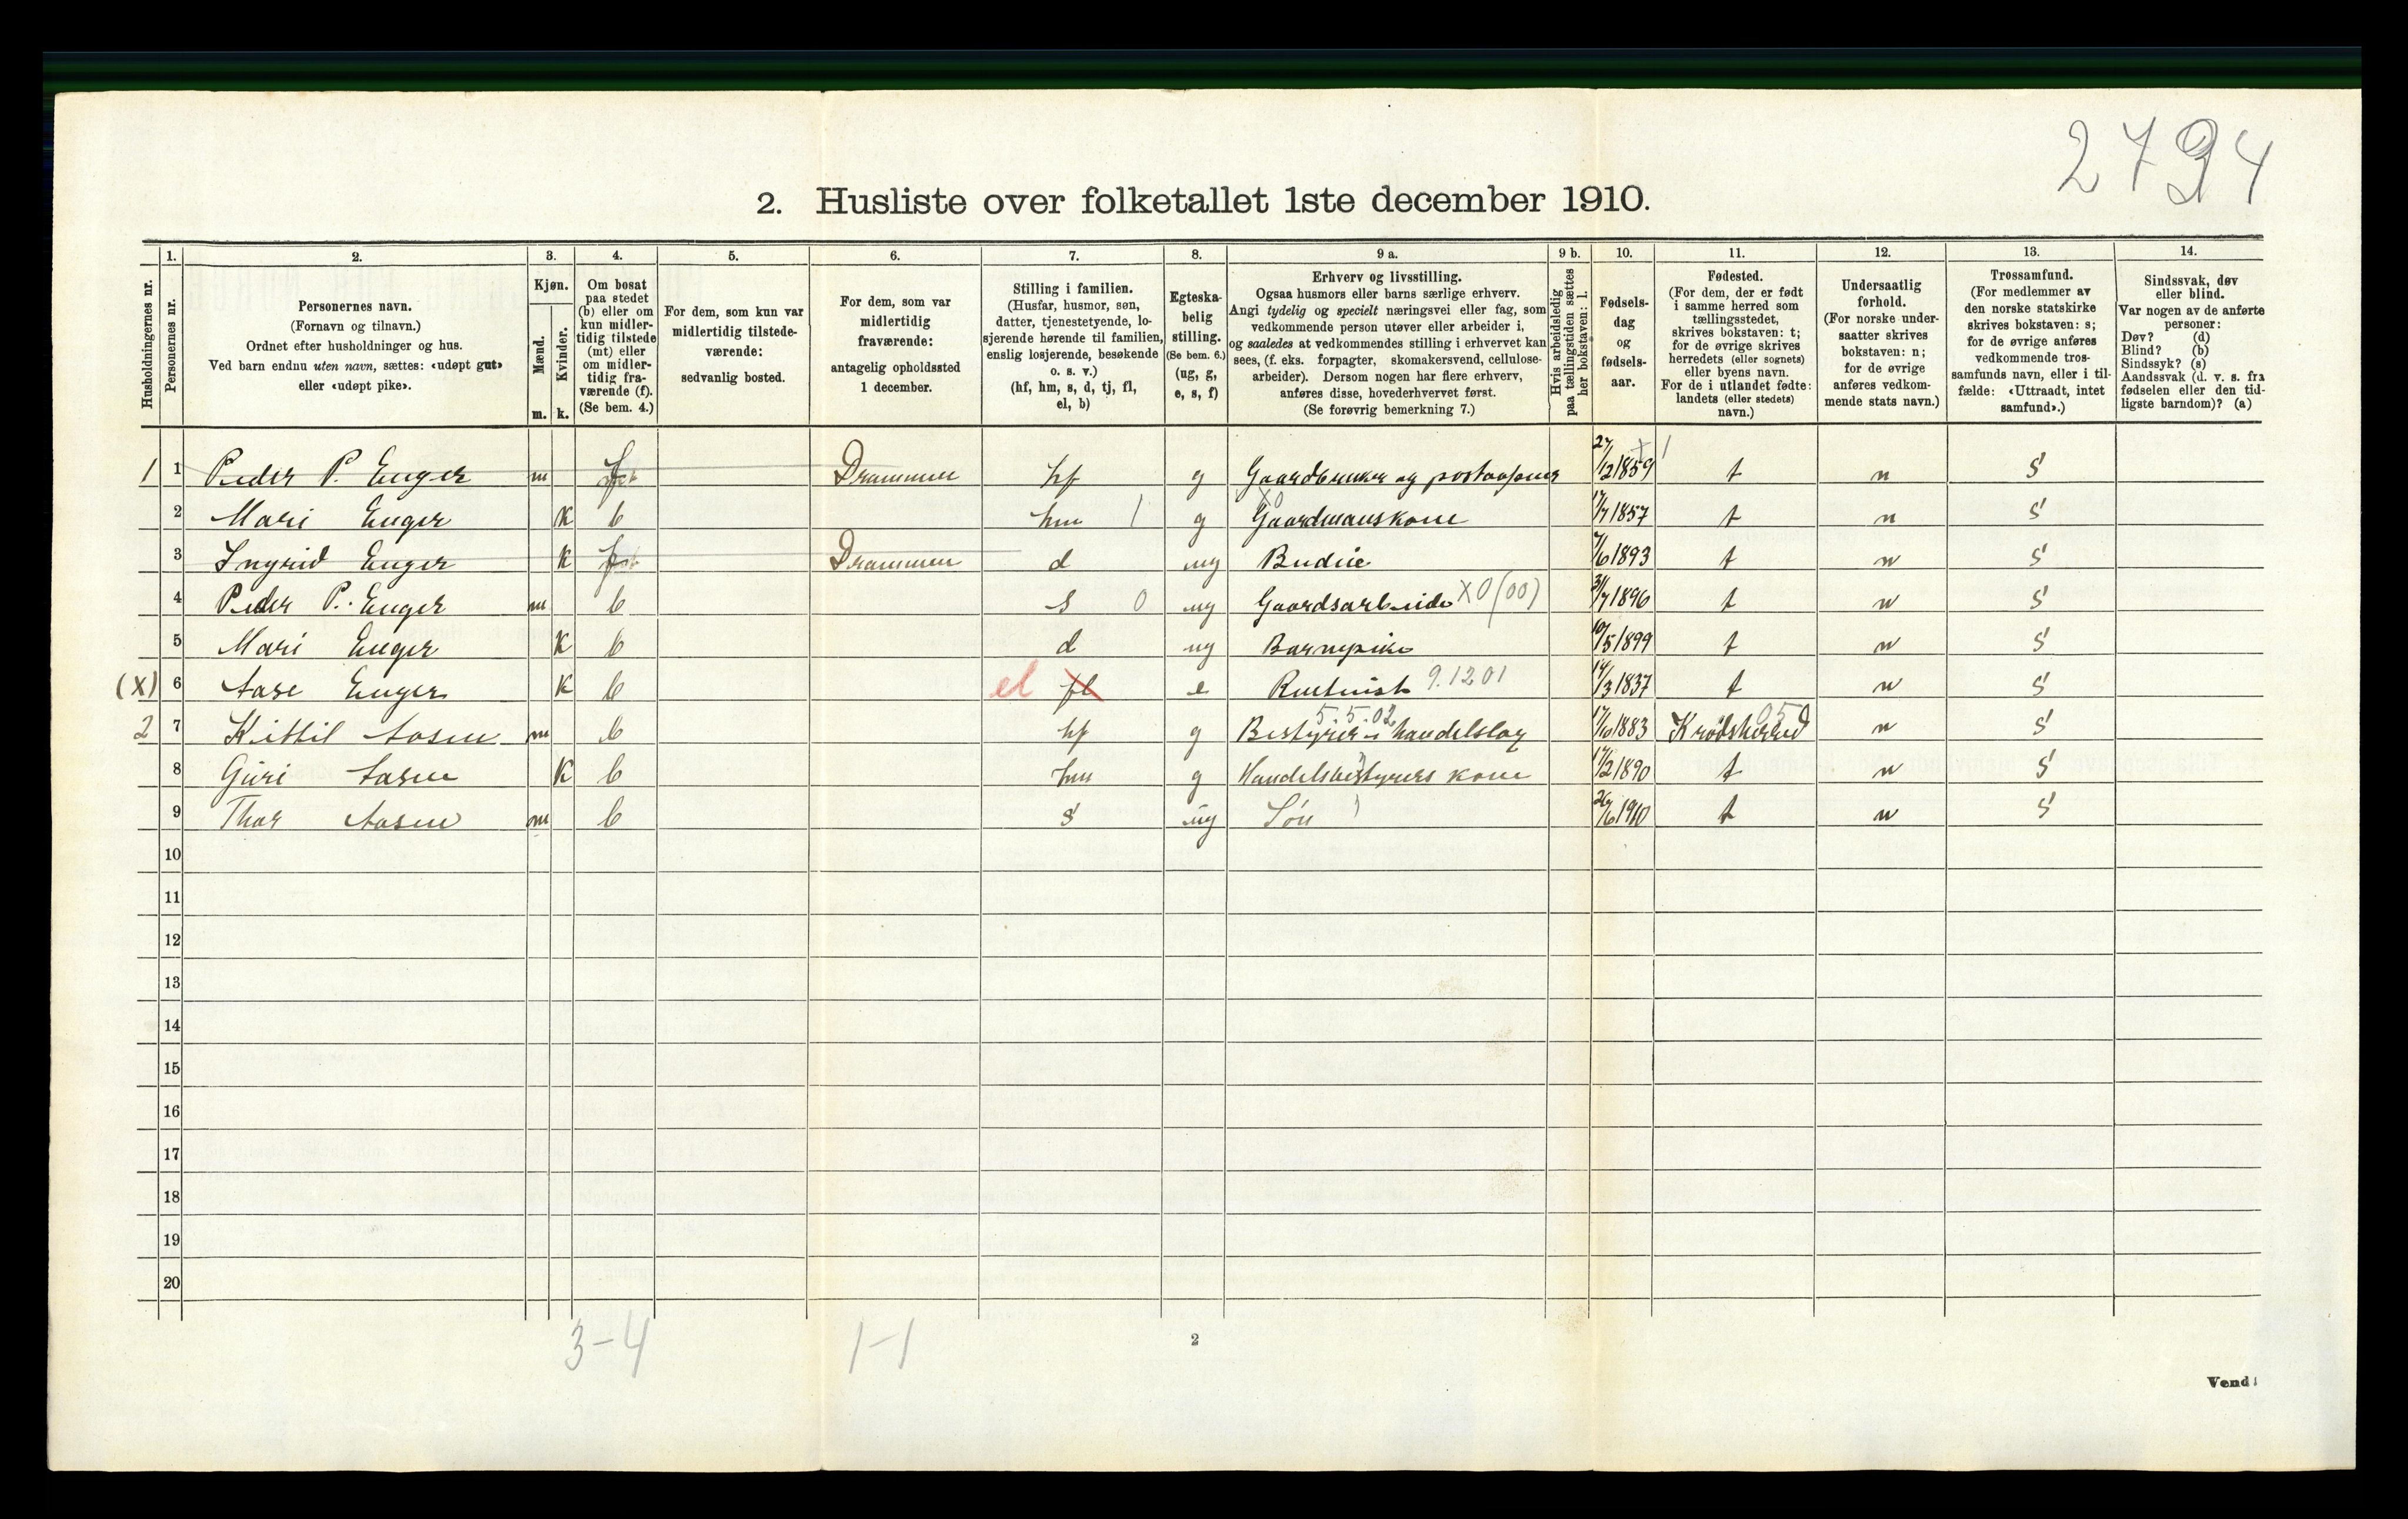 2794
2. Husliste over folketallet 1ste december 1910.
1. 2. 3. 4. 5. 6. 7. 8. 9 a. 9 b. 10. 11. 12. 13. 14.
Husholdningernes nr.
Personernes nr.
Personernes navn.
(Fornavn og tilnavn.)
Ordnet efter husholdninger og hus.
Ved barn endnu uten navn, sættes: «udøpt gut»
eller «udøpt pike».
Kjøn.
Mænd.
Kvinder.
m. k.
Om bosat
paa stedet
(b) eller om
kun midler-
tidig tilstede
(mt) eller
om midler-
tidig fra-
værende (f).
(Se bem. 4.)
For dem, som kun var
midlertidig tilstede-
værende:
sedvanlig bosted.
For dem, som var
midlertidig
fraværende:
antagelig opholdssted
1 december.
Stilling i familien.
(Husfar, husmor, søn,
datter, tjenestetyende, lo-
sjerende hørende til familien,
enslig losjerende, besøkende
o. s. v.)
(hf, hm, s, d, tj, fl,
el, b)
Egteska-
belig
stilling.
(Se bem. 6.)
(ug, g,
e, s, f)
Erhverv og livsstilling.
Ogsaa husmors eller barns særlige erhverv.
Angi tydelig og specielt næringsvei eller fag, som
vedkommende person utøver eller arbeider i,
og saaledes at vedkommendes stilling i erhvervet kan
sees, (f. eks. forpagter, skomakersvend, cellulose-
arbeider). Dersom nogen har flere erhverv,
anføres disse, hovederhvervet først.
(Se forøvrig bemerkning 7.)
Hvis arbeidsledig
paa tællingstiden sættes
her bokstaven: l.
Fødsels-
dag
og
fødsels-
aar.
Fødested.
(For dem, der er født
i samme herred som
tællingsstedet,
skrives bokstaven: t;
for de øvrige skrives
herredets (eller sognets)
eller byens navn.
For de i utlandet fødte:
landets (eller stedets)
navn.)
Undersaatlig
forhold.
(For norske under-
saatter skrives
bokstaven: n;
for de øvrige
anføres vedkom-
mende stats navn.)
Trossamfund.
(For medlemmer av
den norske statskirke
skrives bokstaven: s;
for de øvrige anføres
vedkommende tros-
samfunds navn, eller i til-
fælde: «Uttraadt, intet
samfund».)
Sindssvak, døv
eller blind.
Var nogen av de anførte
personer:
Døv? (d)
Blind? (b)
Sindssyk? (s)
Aandssvak (d. v. s. fra
fødselen eller den tid-
ligste barndom)? (a)
1 1 Peder P. Enger m Drammen hf g Gaardbruker og postaapner 27/12 1859 t n S
2 Mari Enger K b hm 1 g Gaardmanskone X0 17/7 1857 t n S
3 Ingrid Enger K Drammen d ug Budeie 7/6 1893 t n S
4 Peder P. Enger m b s 0 ug Gaardsarbeide X0(00) 1896 t n S
5 Mari Enger K b d ug Barnepike 10/5 1899 t n S
(X) 6 Aase Enger K b el fl e 9.1201 14/3 1837 t n S
2 7 Kittil Aasen m b hf g Bestyrer i handelslag 5.5.02 1883 Krødsherred 050 n S
8 Guri Aasen K b hm g Handelsbestyrers kone 1890 t n S
9 Thor Aasen m b s ug Søn 26/6 1910 t n S
10
11
12
13
14
15
16
17
18
19
20
3-4 1-1
2
Vend!